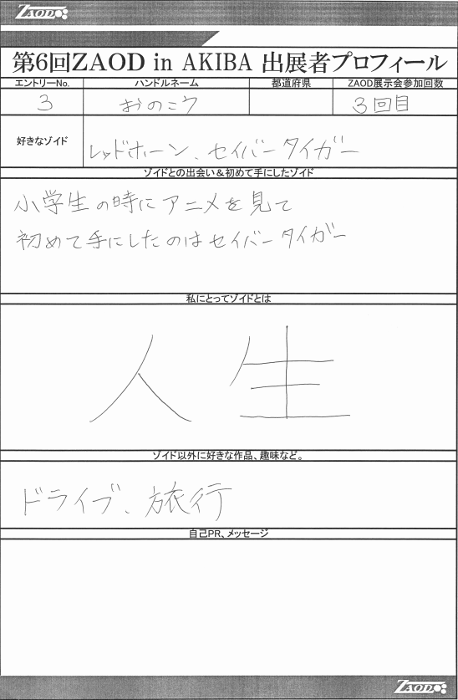 ZAOD
第6回ZAOD in AKIBA 出展者プロフィール
エントリーNo. ハンドルネーム 都道府県 ZAOD展示会参加回数
3 おのこウ 3回目
好きなゾイド レッドホーン、セイバータイガー
ゾイドとの出会い&初めて手にしたゾイド
小学生の時にアニメを見て
初めて手にしたのはセイバータイガー
私にとってゾイドとは
人生
ゾイド以外に好きな作品、趣味など。
ドライブ、旅行
自己PR、メッセージ
ZAOD